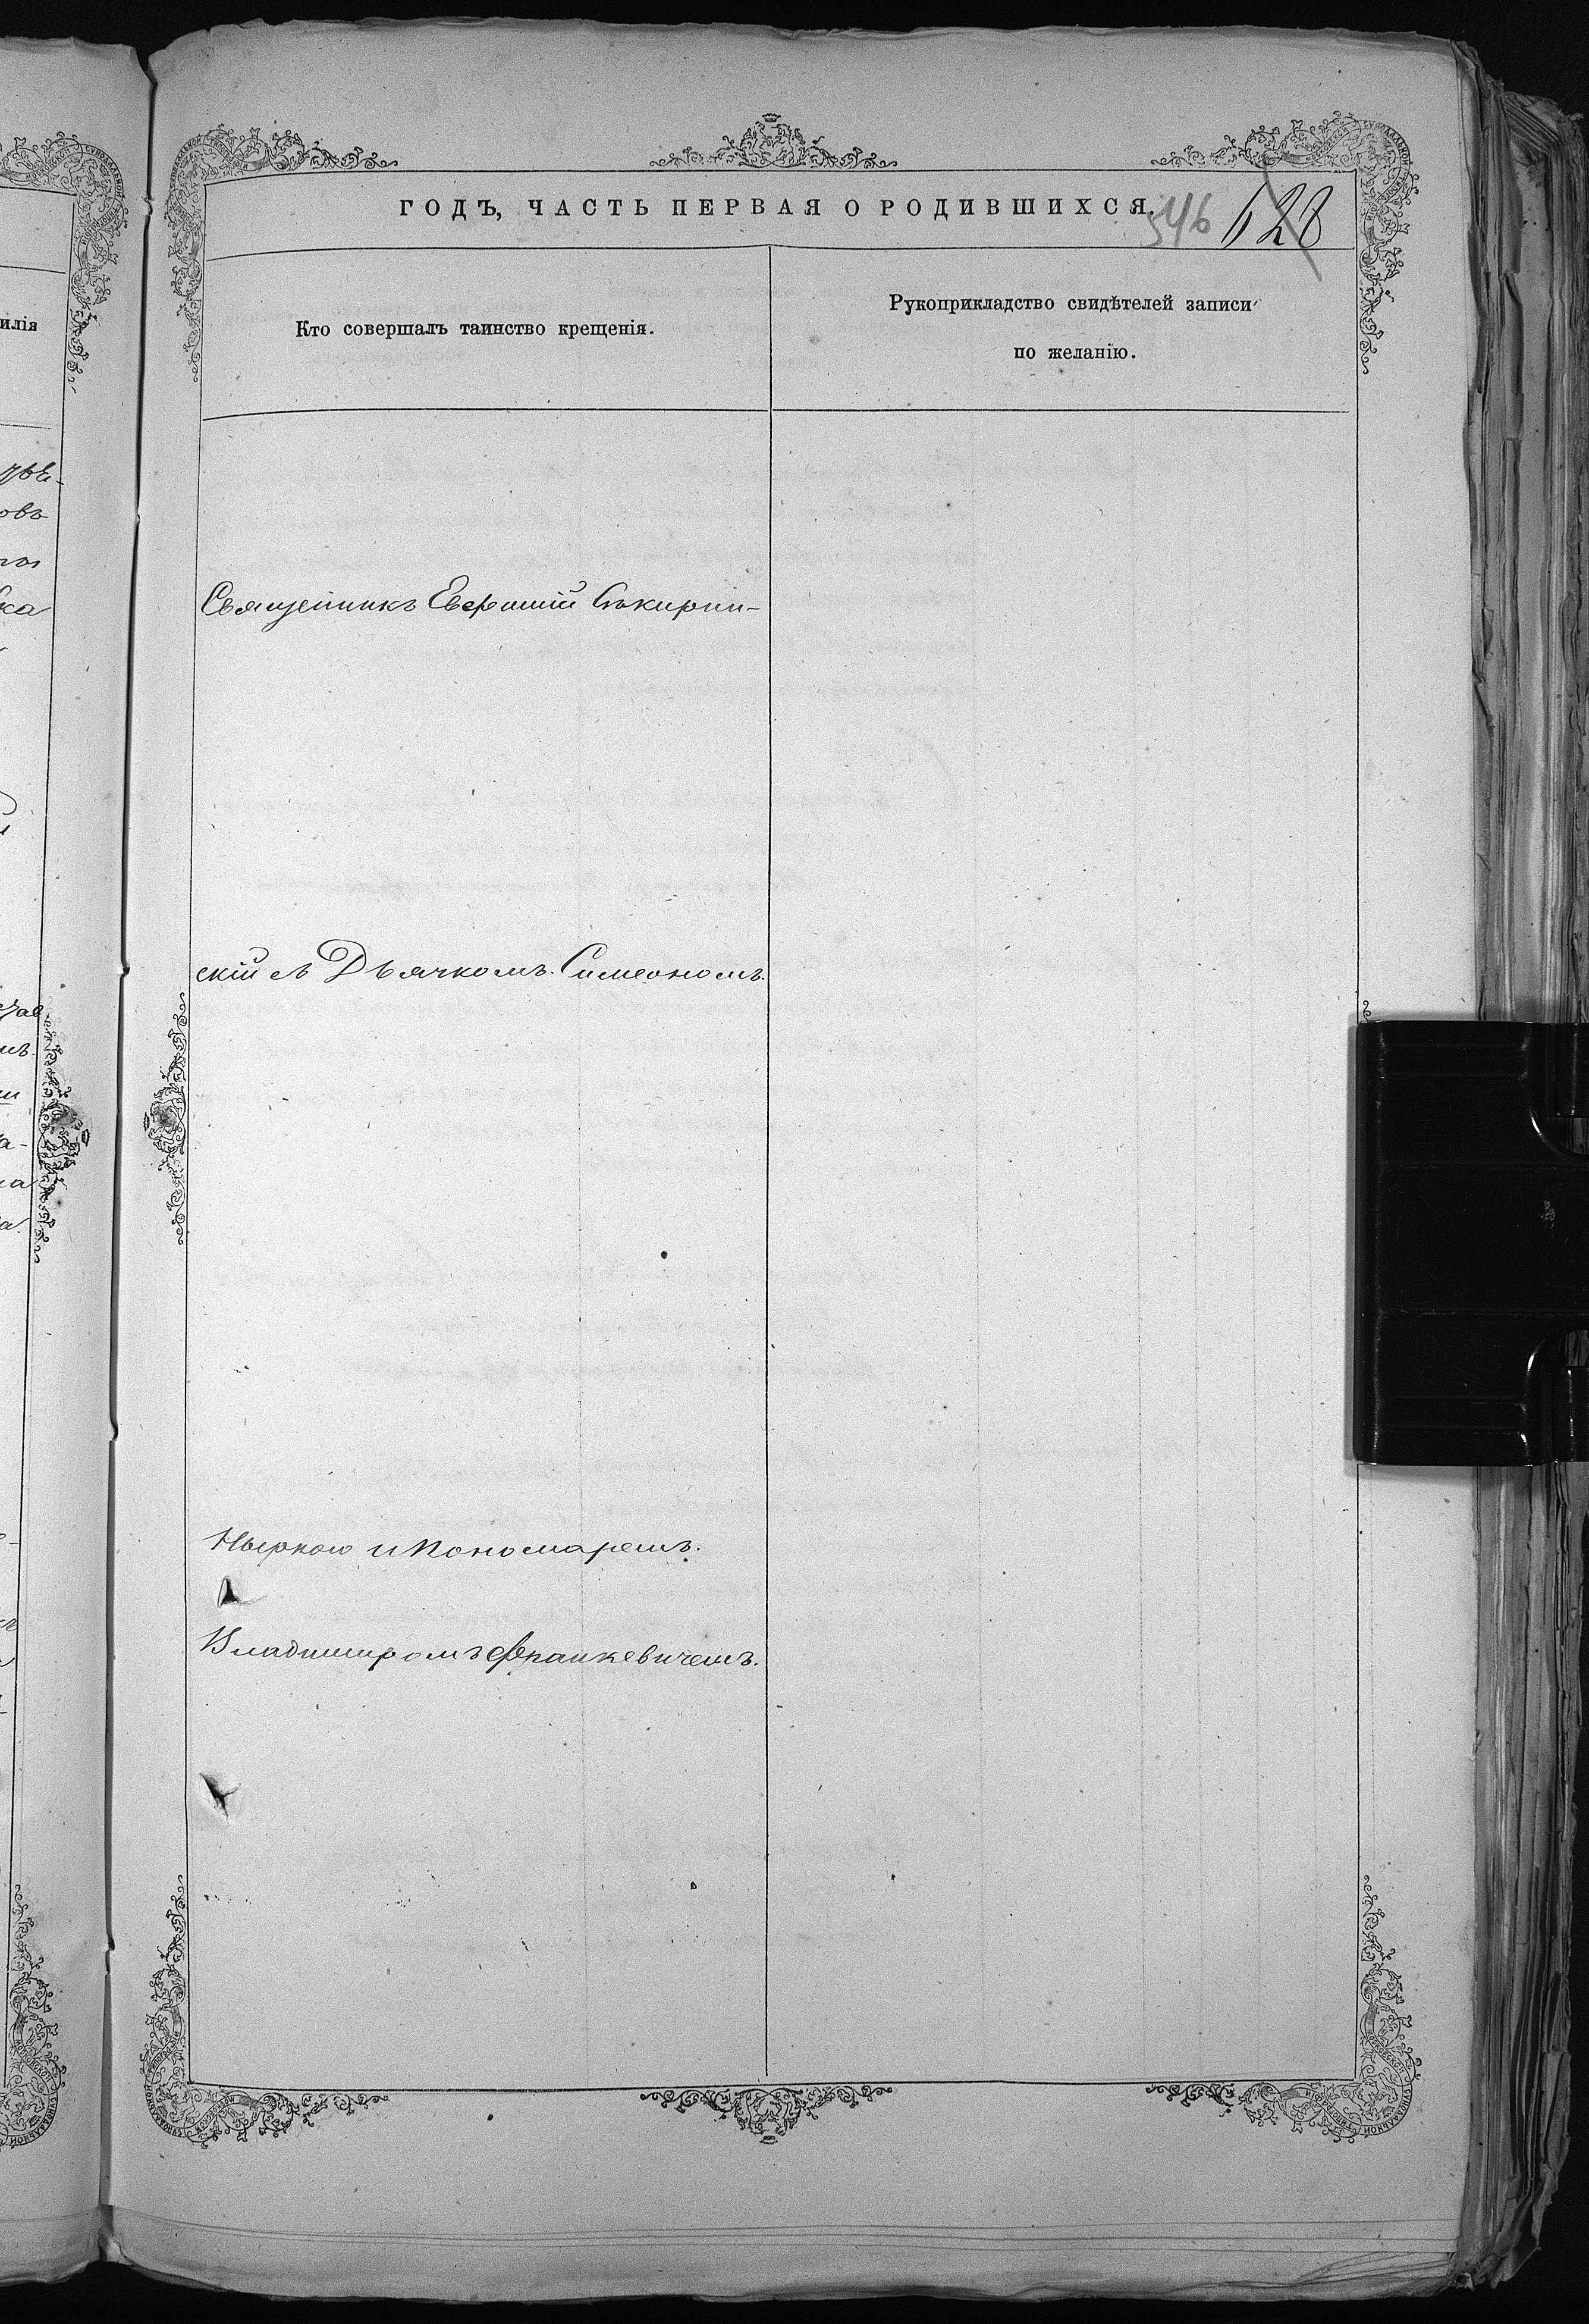 илія
овъ
ка
ГОДЪ, ЧАСТЬ ПЕРВАЯ О РОДИВШИХСЯ.
546 628
Кто совершалъ таинство крещенія.
Рукоприкладство свидѣтелей записи
по желанію.
Священникъ Евфимій Сѣкирин-
скій съ Дьячкомъ Симеономъ
и Пономаремъ.
Владимиромъ Франкевичемъ.